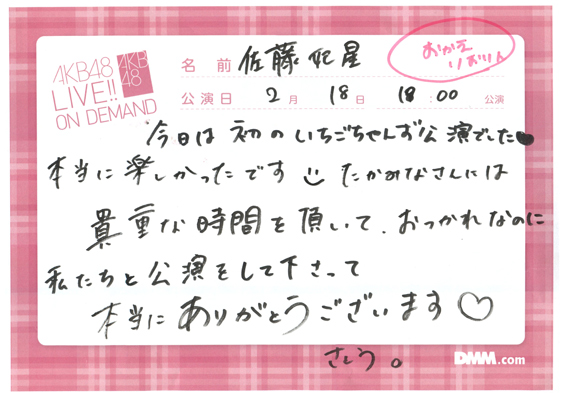 AKB48
LIVE!!
ON DEMAND
AKB
48
名前 佐藤妃星
おかえ
りおりん
公演日 2月 18日 18:00 公演
今日は初のいちごちゃんず公演でした♥
本当に楽しかったです☺ たかみなさんには
貴重な時間を頂いて、おつかれなのに
私たちと公演をして下さって
本当にありがとうございます♡
きしう。
DMM.com